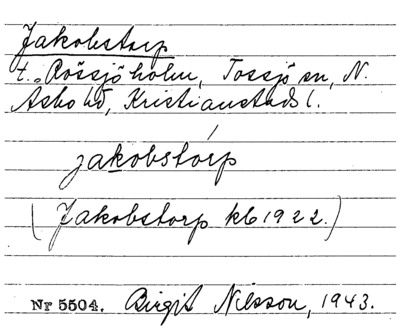 Jakobstorp
t. Rössjöholm, Tossjö sn, N.
Åsbo hd, Kristianstads l.
jakobstórp
(Jakobstorp kb 1922.)
Nr 5504. Birgit Nilsson, 1943.